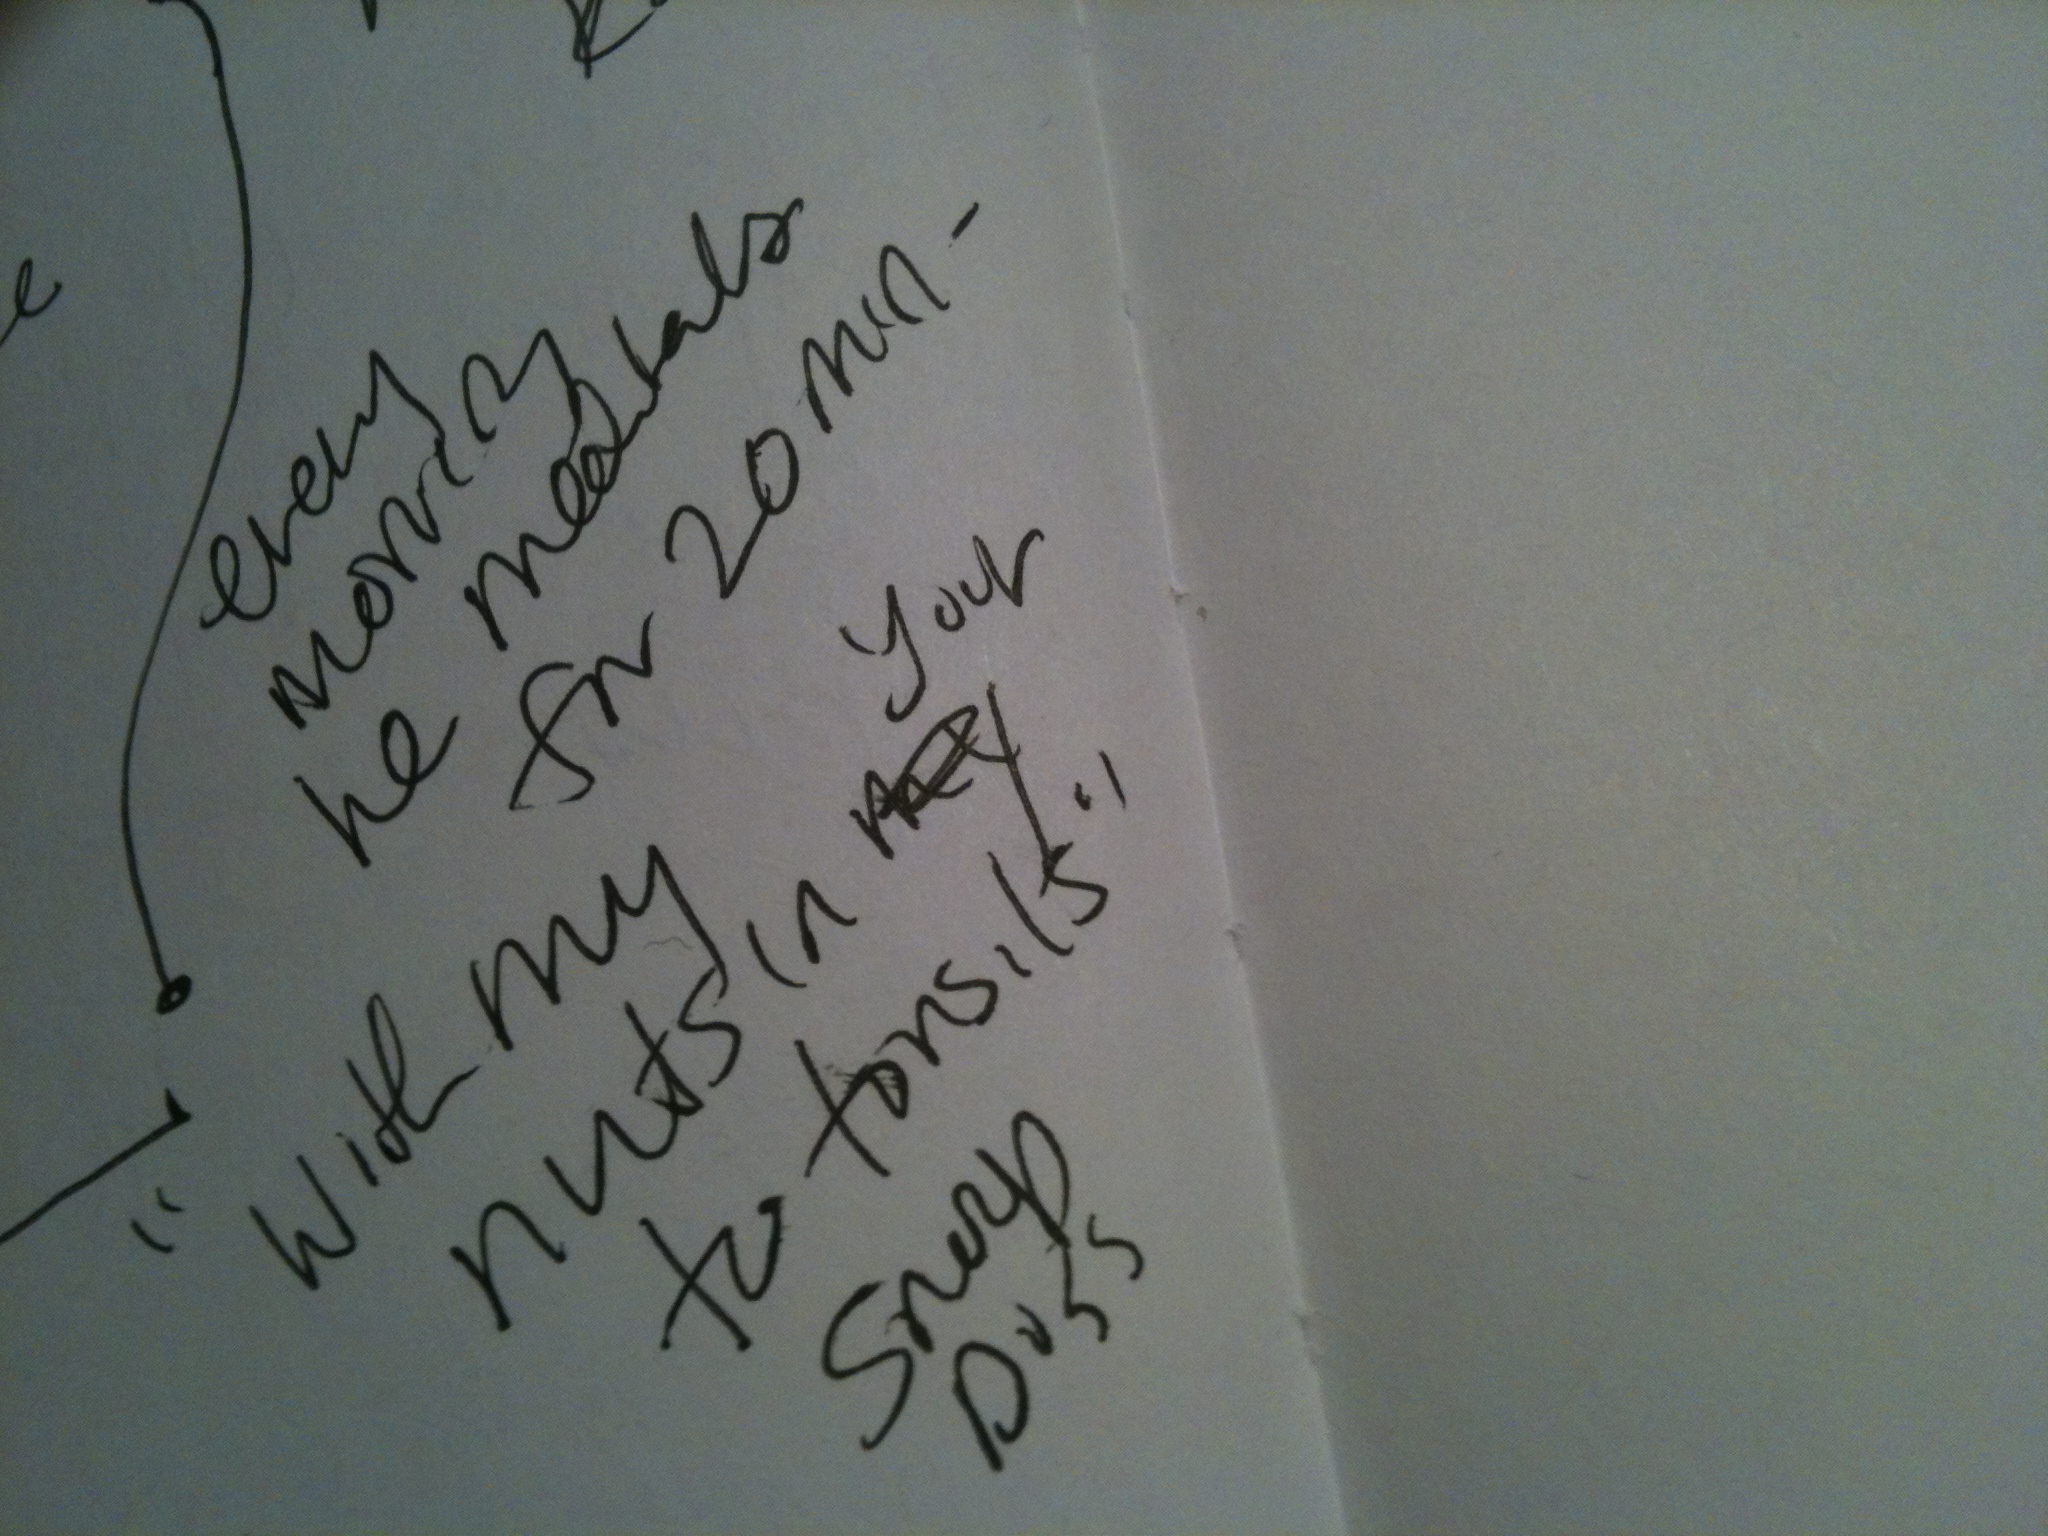 every
morning
he meditates
for 20 min -
"With my
nuts in your
to tonsils"
Snoop
Dogg